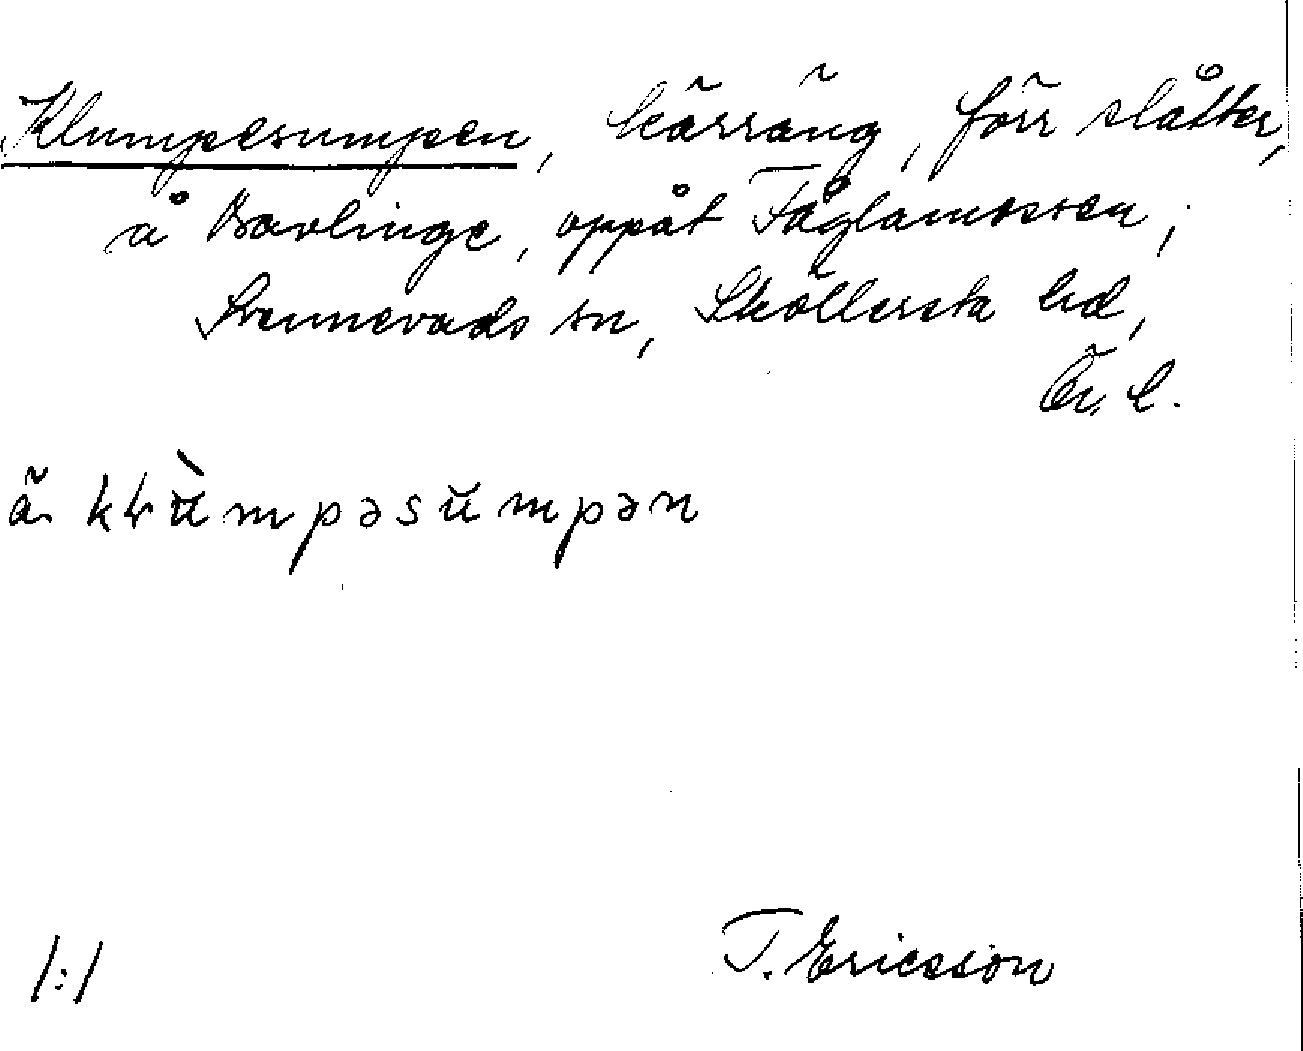 Klumpesumpen, kärräng, förr slåtter,
å Bavlinge, uppåt Fåglamossen,
Svennevads sn, Sköllersta hd,
Ör. l.
ä. kɽùmpəsumpən
1:1 T. Ericsson